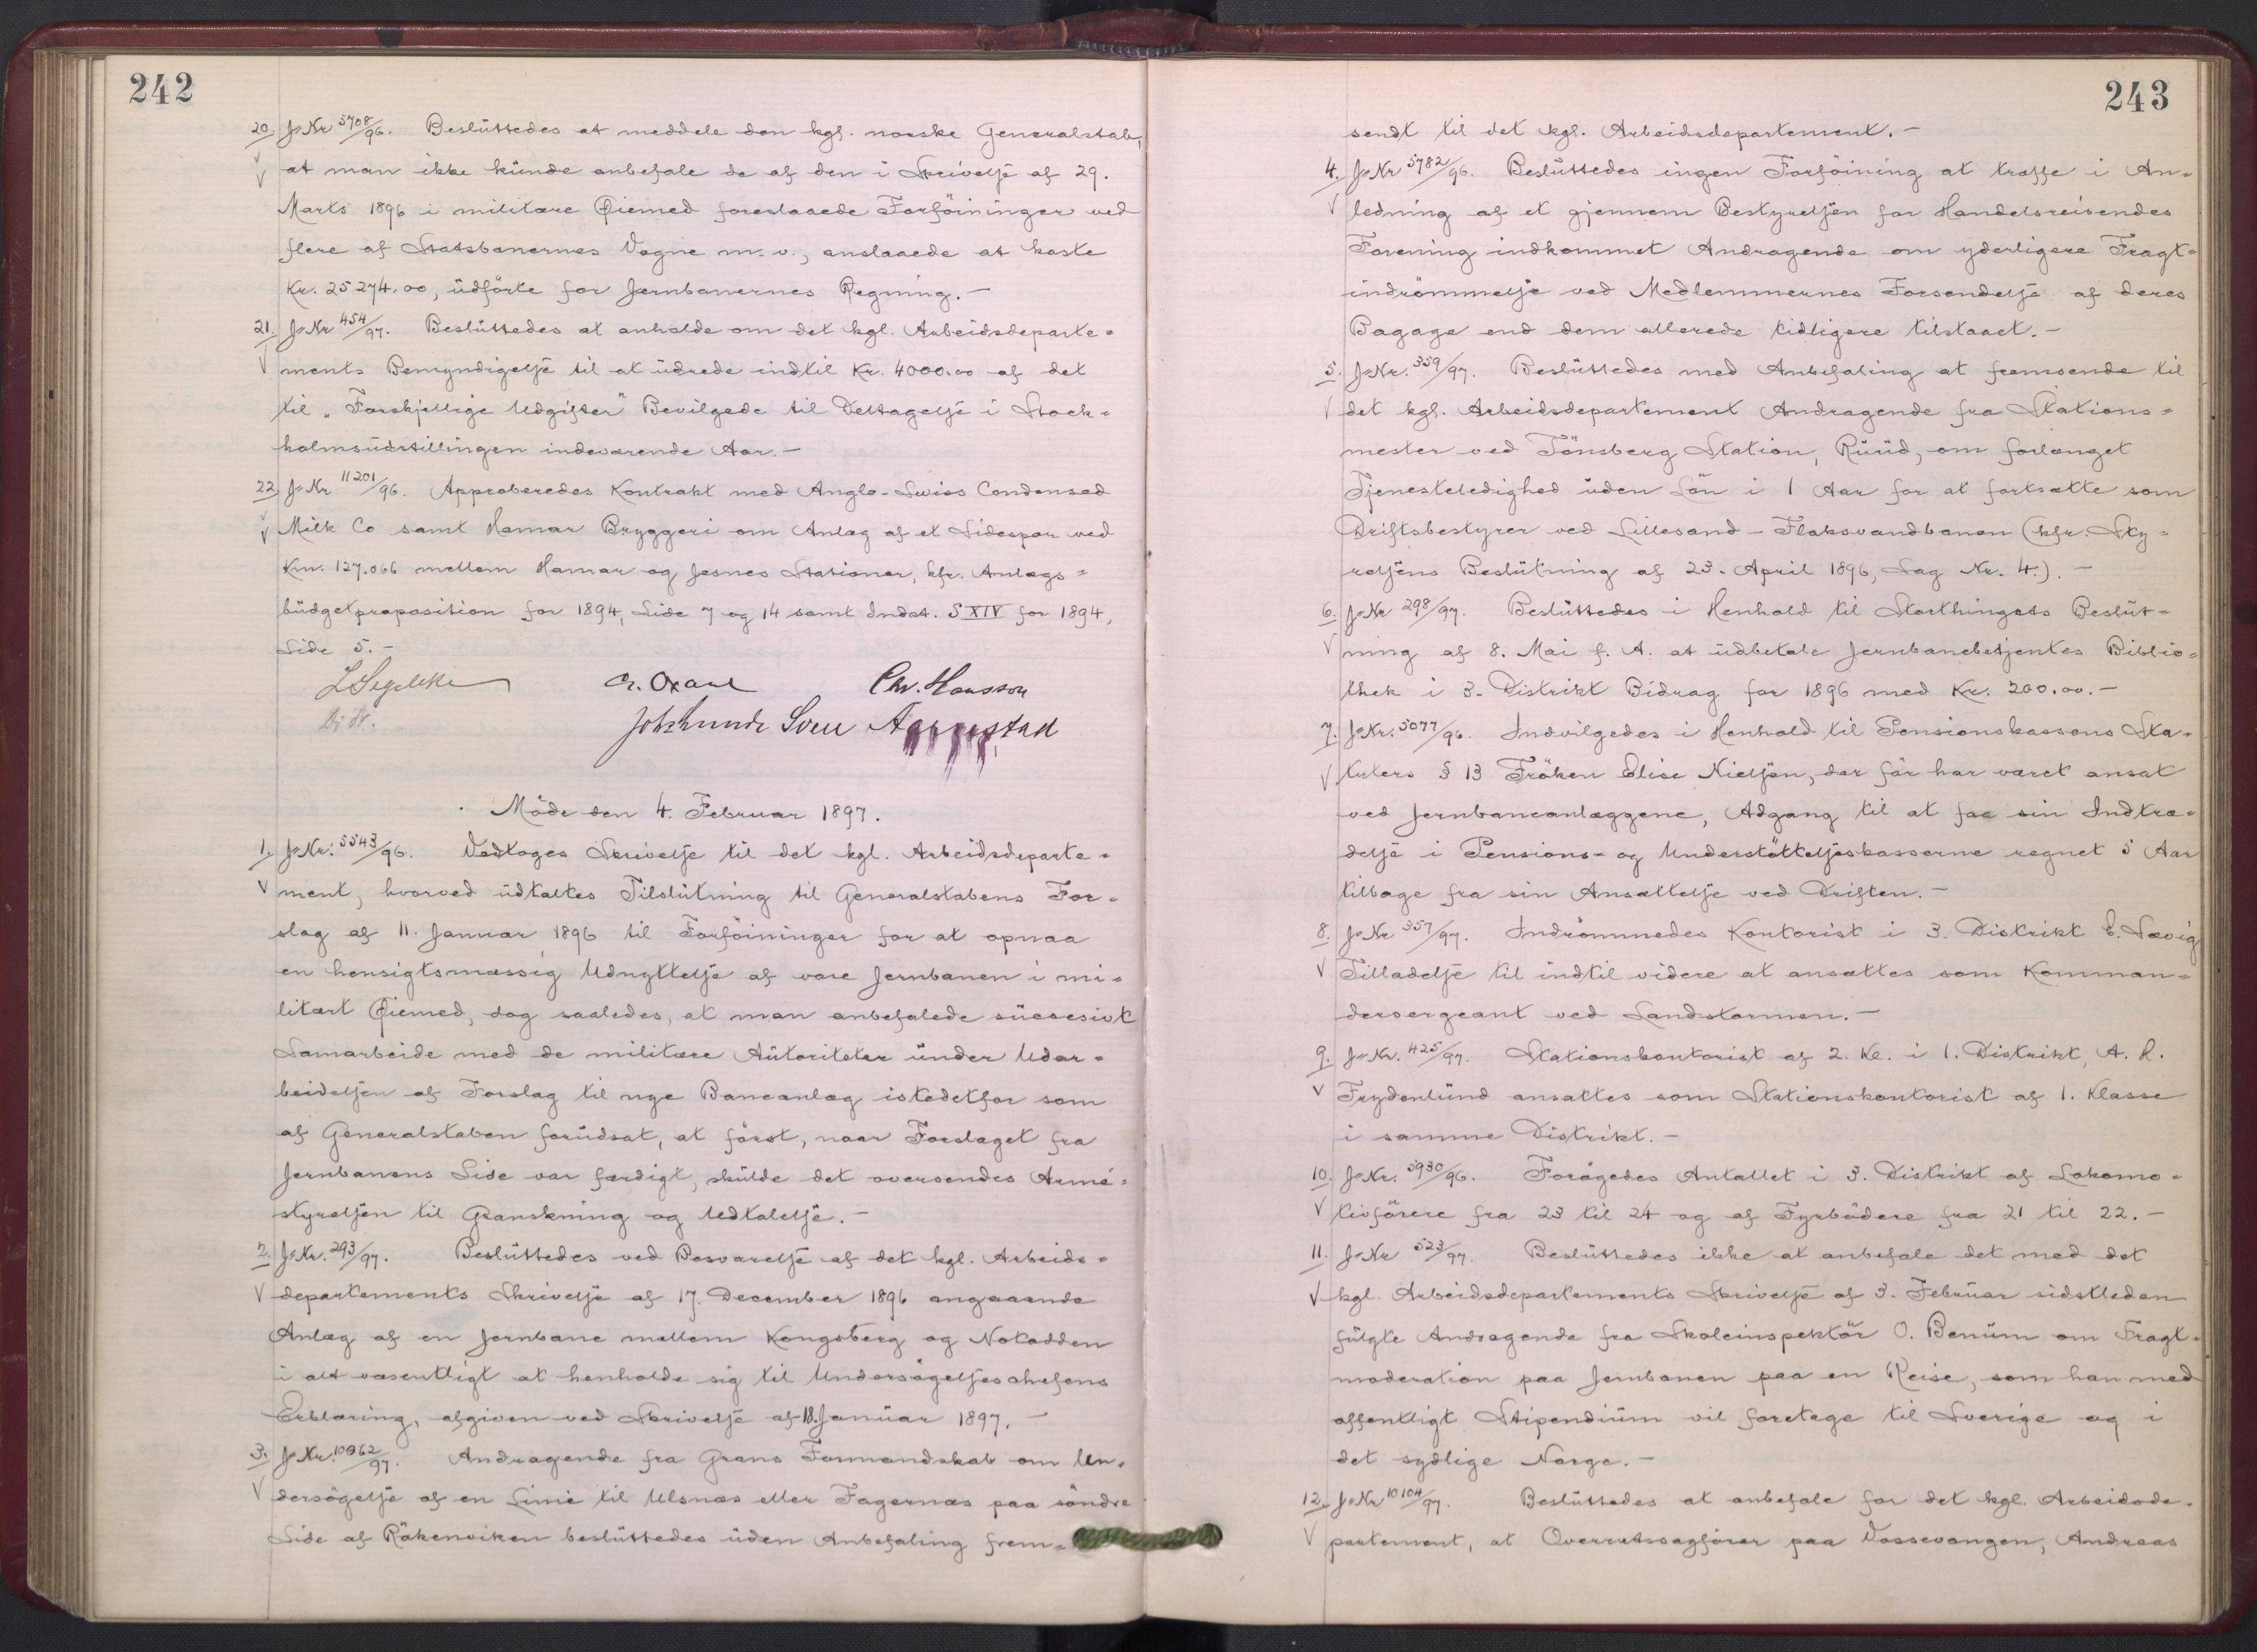 242
20. J.Nr 5708/96. Besluttedes at meddele den kgl. norske Generalstab,
V at man ikke kunde anbefale de af den i Skrivelse af 29.
Marts 1896 i militære Øiemed foreslaaede Forföininger ved
flere af Statsbanernes Vogne m.v., anslaaede at koste
Kr. 25274.00, udförte for Jernbanernes Regning.-
21. J.Nr 454/97. Besluttedes at anholde om det kgl. Arbeidsdeparte-
V ments Bemyndigelse til at udrede indtil Kr. 4000.00 af det
til "Forskjellige Udgifter" Bevilgede til Deltagelse i Stock-
holmsudstillingen indeværende Aar.-
22. J.Nr 11201/96. Approberedes Kontrakt med Anglo-Swiss Condensed
V Milk Co samt Hamar Bryggeri om Anlæg af et Sidespor ved
Km. 127.066 mellem Hamar og Jesnes Stationer, kfr. Anlægs-
budgetproposition for 1894, Side 7 og 14 samt Indst. S XIV for 1894,
Side 5.-
L Segelcke Cr. Oxaal Chr. Hansson
Joh. Sverre Aarrestad
Möde den 4. Februar 1897.
1. J.Nr. 5543/96. Vedtoges Skrivelse til det kgl. Arbeidsdeparte-
V ment, hvorved udtaltes Tilslutning til Generalstabens For-
slag af 11. Januar 1896 til Forföininger for at opnaa
en hensigtsmæssig Udnyttelse af vore Jernbanen i mi-
litært Øiemed, dog saaledes, at man anbefalede sucsesivt
Samarbeide med de militære Autoriteter under Udar-
beidelsen af Forslag til nye Baneanlæg istedetfor som
af Generalstaben forudsat, at först, naar Forslaget fra
Jernbanens Side var færdigt, skulde det oversendes Armé-
styrelsen til Granskning og Udtalelse.-
2. J.Nr. 293/97. Besluttedes ved Besvarelse af det kgl. Arbeids-
V departements Skrivelse af 17. December 1896 angaaende
Anlæg af en Jernbane mellem Kongsberg og Notodden
i alt væsentligt at henholde sig til Undersögelseschefens
Erklæring, afgiven ved Skrivelse af 18. Januar 1897.-
3. J.Nr. 10062/97. Andragende fra Grans Formandskab om Un-
V dersögelse af en Linie til Ulsnæs eller Fagernæs paa söndre
Side af Rökenviken besluttedes uden Anbefaling frem-
243
sendt til det kgl. Arbeidsdepartement.-
4. J.Nr 5782/96. Besluttedes ingen Forföining at træffe i An-
V ledning af et gjennem Bestyrelsen for Handelsreisendes
Forening indkommet Andragende om yderligere Fragt-
indrömmelse ved Medlemmernes Forsendelse af deres
Bagage end dem allerede tidligere tilstaaet.-
5. J.Nr. 359/97. Besluttedes med Anbefaling at fremsende til
V det kgl. Arbeidsdepartement Andragende fra Stations-
mester ved Tönsberg Station, Ruud, om forlænget
Tjenesteledighed uden Lön i 1 Aar for at fortsætte som
Driftsbestyrer ved Lillesand-Flaksvandbanen (kfr. Sty-
relsens Beslutning af 23. April 1896, Sag Nr. 4.).-
6. J.Nr 298/97. Besluttedes i Henhold til Storthingets Beslut-
V ning af 8. Mai f. A. at udbetale Jernbanebetjentes Biblio-
thek i 3. Distrikt Bidrag for 1896 med Kr. 200.00.-
7. J.Nr. 5077/96. Indvilgedes i Henhold til Pensionskassens Sta-
V tuters § 13 Fröken Elise Nielsen, der för har været ansat
ved Jernbaneanlæggene, Adgang til at faa sin Indtræ-
delse i Pensions- og Understöttelseskasserne regnet 5 Aar
tilbage fra sin Ansættelse ved Driften.-
8. J.Nr 357/97. Indrömmedes Kontorist i 3. Distrikt E. Sævig
V Tilladelse til indtil videre at ansættes som Komman-
dersergeant ved Landstormen.-
9. J.Nr. 425/97. Stationskontorist af 2. Kl. i 1. Distrikt, A. H.
V Frydenlund ansattes som Stationskontorist af 1. Klasse
i samme Distrikt.-
10. J.Nr. 5930/96. Forögedes Antallet i 3. Distrikt af Lokomo-
V tivförere fra 23 til 24 og af Fyrbödere fra 21 til 22.-
11. J.Nr 523/97. Besluttedes ikke at anbefale det med det
V kgl. Arbeidsdepartements Skrivelse af 3. Februar sidstleden
fulgte Andragende fra Skoleinspektör O. Benum om Fragt-
moderation paa Jernbanen paa en Reise, som han med
offentligt Stipendium vil foretage til Sverige og i
det sydlige Norge.-
12. J.Nr 10104/97. Besluttedes at anbefale for det kgl. Arbeidsde-
V partement, at Overretssagförer paa Vossevangen, Andreas